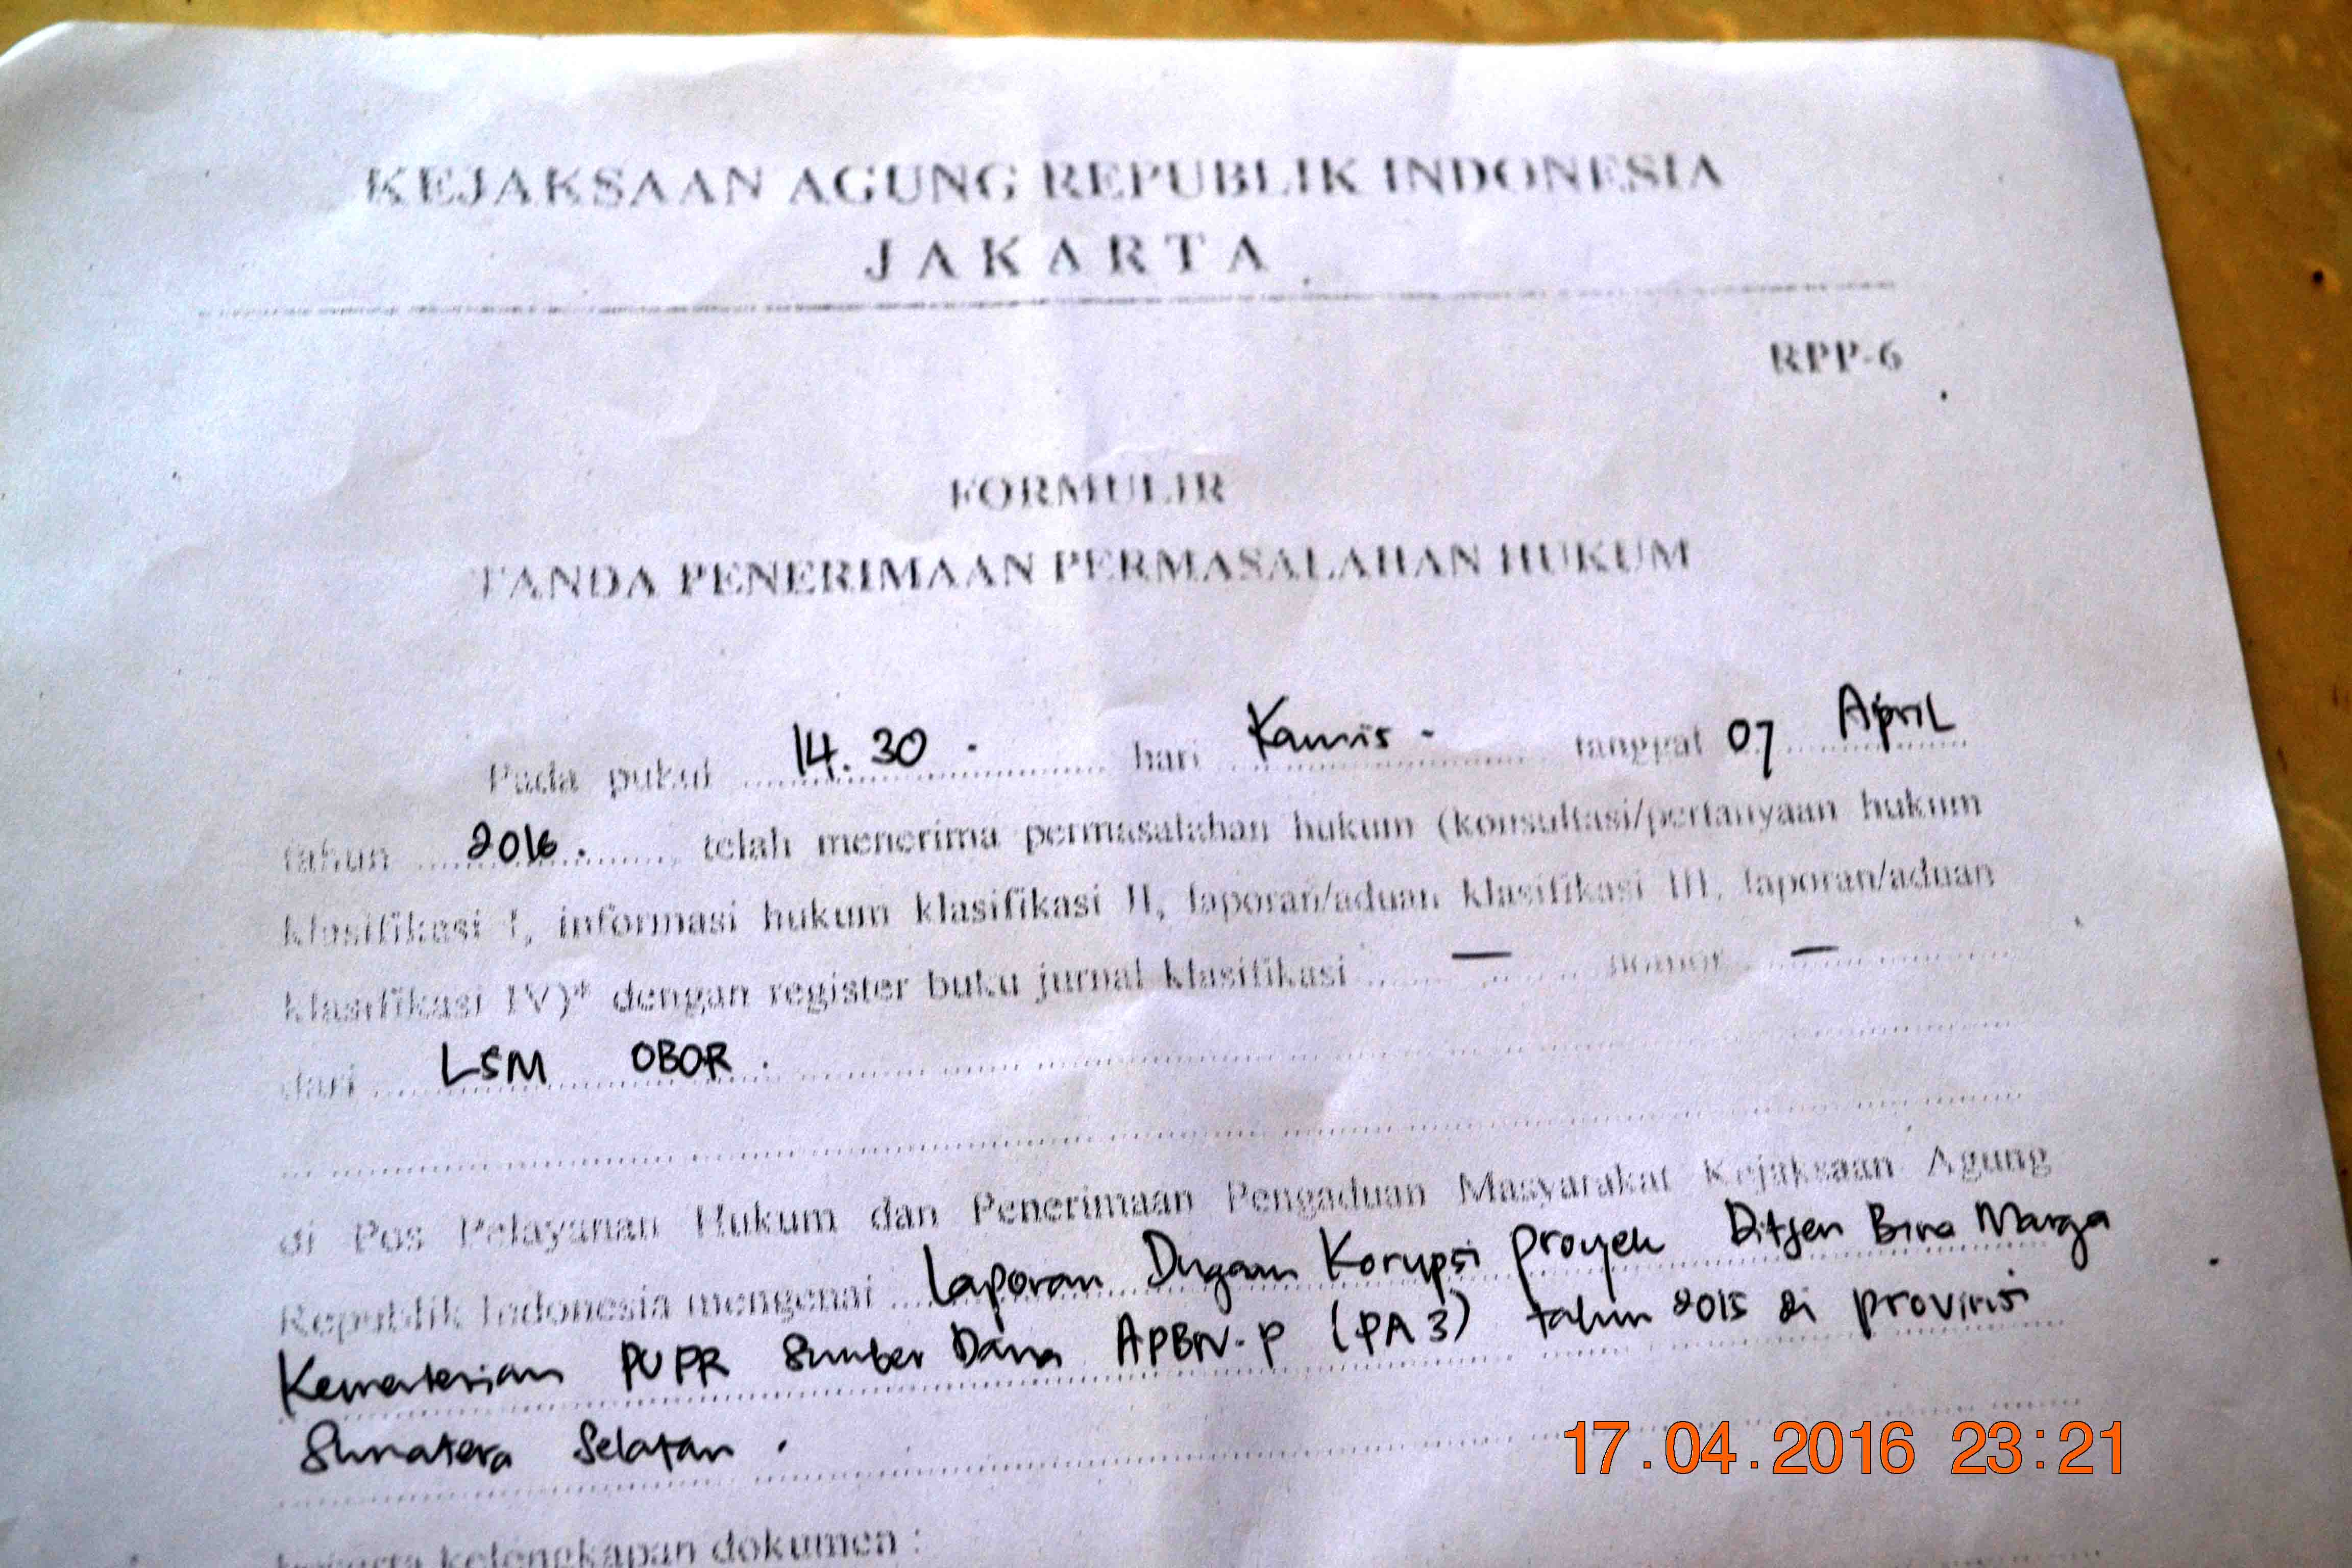 KEJAKSAAN AGUNG REPUBLIK INDONESIA
JAKARTA
RPP-6
FORMULIR
TANDA PENERIMAAN PERMASALAHAN HUKUM
Pada pukul 14.30. hari Kamis - tanggal 07 April
tahun 2016. telah menerima permasalahan hukum (konsultasi/pertanyaan hukum
klasifikasi I, informasi hukum klasifikasi II, laporan/aduan klasifikasi III, laporan/aduan
klasifikasi IV)* dengan register buku jurnal klasifikasi — nomor —
dari LSM OBOR.
di Pos Pelayanan Hukum dan Penerimaan Pengaduan Masyarakat Kejaksaan Agung
Republik Indonesia mengenai Laporan Dugaan Korupsi proyek Ditjen Bina Marga
Kementerian PUPR Sumber Dana APBN-P (PA3) tahun 2015 di provinsi
Sumatera Selatan.
beserta kelengkapan dokumen :
17.04.2016 23:21